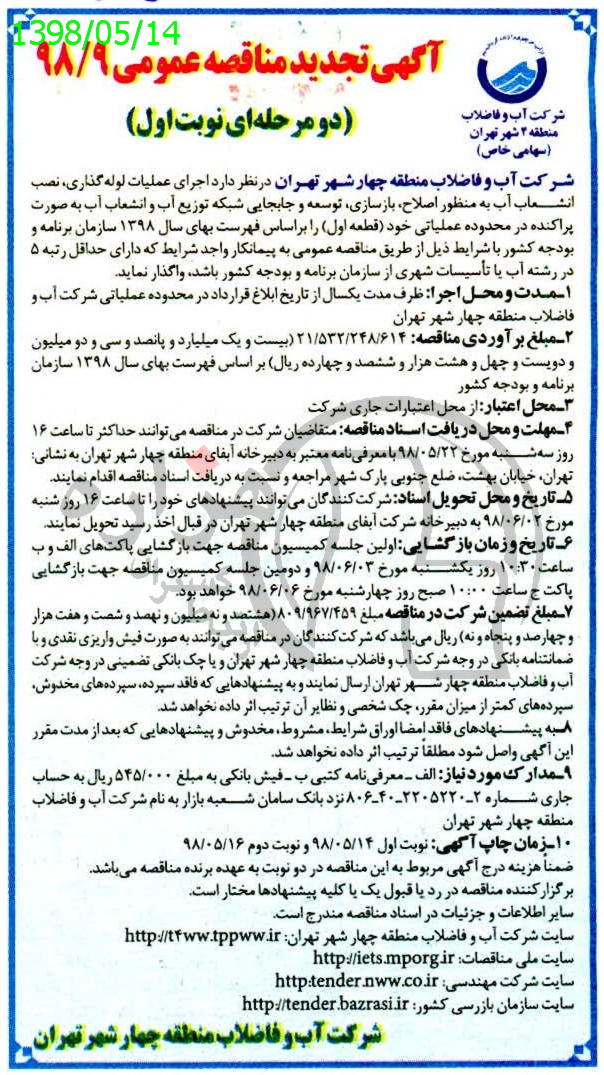 1398/05/14
آگهی تجدید مناقصه عمومی ۹۸/۹
(دو مرحله‌ای نوبت اول)
شرکت آب و فاضلاب
منطقه ۴ شهر تهران
(سهامی خاص)
شرکت آب و فاضلاب منطقه چهار شهر تهران درنظر دارد اجرای عملیات لوله گذاری، نصب
انشعاب آب به منظور اصلاح، بازسازی، توسعه و جابجایی شبکه توزیع آب و انشعاب آب به صورت
پراکنده در محدوده عملیاتی خود (قطعه اول) را براساس فهرست بهای سال ۱۳۹۸ سازمان برنامه و
بودجه کشور با شرایط ذیل از طریق مناقصه عمومی به پیمانکار واجد شرایط که دارای حداقل رتبه ۵
در رشته آب یا تأسیسات شهری از سازمان برنامه و بودجه کشور باشد، واگذار نماید.
۱ـ مدت و محل اجرا: ظرف مدت یکسال از تاریخ ابلاغ قرارداد در محدوده عملیاتی شرکت آب و
فاضلاب منطقه چهار شهر تهران
۲ـ مبلغ برآوردی مناقصه: ۲۱/۵۳۲/۲۴۸/۶۱۴ (بیست و یک میلیارد و پانصد و سی و دو میلیون
و دویست و چهل و هشت هزار و ششصد و چهارده ریال) بر اساس فهرست بهای سال ۱۳۹۸ سازمان
برنامه و بودجه کشور
۳ـ محل اعتبار: از محل اعتبارات جاری شرکت
۴ـ مهلت و محل دریافت اسناد مناقصه: متقاضیان شرکت در مناقصه می‌توانند حداکثر تا ساعت ۱۶
روز سه‌شنبه مورخ ۹۸/۰۵/۲۲ با معرفی‌نامه معتبر به دبیرخانه آبفای منطقه چهار شهر تهران به نشانی:
تهران، خیابان بهشت، ضلع جنوبی پارک شهر مراجعه و نسبت به دریافت اسناد مناقصه اقدام نمایند.
۵ـ تاریخ و محل تحویل اسناد: شرکت کنندگان می‌توانند پیشنهادهای خود را تا ساعت ۱۶ روز شنبه
مورخ ۹۸/۰۶/۰۲ به دبیرخانه شرکت آبفای منطقه چهار شهر تهران در قبال اخذ رسید تحویل نمایند.
۶ـ تاریخ و زمان بازگشایی: اولین جلسه کمیسیون مناقصه جهت بازگشایی پاکت‌های الف و ب
ساعت ۱۰:۳۰ روز یکشنبه مورخ ۹۸/۰۶/۰۳ و دومین جلسه کمیسیون مناقصه جهت بازگشایی
پاکت ج ساعت ۱۰:۰۰ صبح روز چهارشنبه مورخ ۹۸/۰۶/۰۶ خواهد بود.
۷ـ مبلغ تضمین شرکت در مناقصه مبلغ ۸۰۹/۹۶۷/۴۵۹ (هشتصد و نه میلیون و نهصد و شصت و هفت هزار
و چهارصد و پنجاه و نه) ریال می‌باشد که شرکت‌کنندگان در مناقصه می‌توانند به صورت فیش واریزی نقدی و با
ضمانتنامه بانکی در وجه شرکت آب و فاضلاب منطقه چهار شهر تهران و یا چک بانکی تضمینی در وجه شرکت
آب و فاضلاب منطقه چهار شهر تهران ارسال نمایند و به پیشنهادهایی که فاقد سپرده، سپرده‌های مخدوش،
سپرده‌های کمتر از میزان مقرر، چک شخصی و نظایر آن ترتیب اثر داده نخواهد شد.
۸ـ به پیشنهادهای فاقد امضا اوراق شرایط، مشروط، مخدوش و پیشنهادهایی که بعد از مدت مقرر
این آگهی واصل شود مطلقاً ترتیب اثر داده نخواهد شد.
۹ـ مدارک مورد نیاز: الف ـ معرفی‌نامه کتبی ب ـ فیش بانکی به مبلغ ۵۴۵/۰۰۰ ریال به حساب
جاری شماره ۲ـ۲۲۰۵۲۲۰ـ۴۰ـ۸۰۶ نزد بانک سامان شعبه بازار به نام شرکت آب و فاضلاب
منطقه چهار شهر تهران
۱۰ـ زمان چاپ آگهی: نوبت اول ۹۸/۰۵/۱۴ و نوبت دوم ۹۸/۰۵/۱۶
ضمناً هزینه درج آگهی مربوط به این مناقصه در دو نوبت به عهده برنده مناقصه می‌باشد.
برگزارکننده مناقصه در رد یا قبول یک یا کلیه پیشنهادها مختار است.
سایر اطلاعات و جزئیات در اسناد مناقصه مندرج است.
سایت شرکت آب و فاضلاب منطقه چهار شهر تهران: http://t۴ww.tppww.ir
سایت ملی مناقصات: http://iets.mporg.ir
سایت شرکت مهندسی: http:tender.nww.co.ir
سایت سازمان بازرسی کشور: http://tender.bazrasi.ir
شرکت آب و فاضلاب منطقه چهار شهر تهران